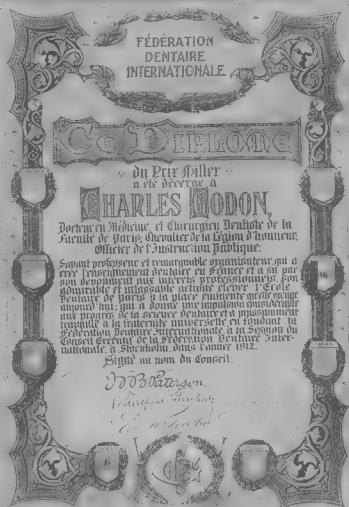 FÉDÉRATION
DENTAIRE
INTERNATIONALE
CE DIPLOME
du Prix Miller
a été décerné à
CHARLES GODON,
Docteur en Médecine, et Chirurgien Dentiste de la
Faculté de Paris, Chevalier de la Légion d'honneur,
Officier de l'Instruction Publique:
Savant professeur et remarquable organisateur, qui a
créé l'enseignement dentaire en France et a su par
son dévouement aux intérêts professionnels, son
admirable et inlassable activité élever l'École
Dentaire de Paris à la place éminente qu'elle occupe
aujourd'hui; qui a donné une impulsion considérable
aux progrès de la science dentaire et a puissamment
travaillé à la fraternité universelle en fondant la
Fédération Dentaire Internationale, à sa Session du
Conseil Exécutif de la Fédération Dentaire Inter-
nationale, à Stockholm, dans l'année 1912.
Signé au nom du Conseil:
Paterson.